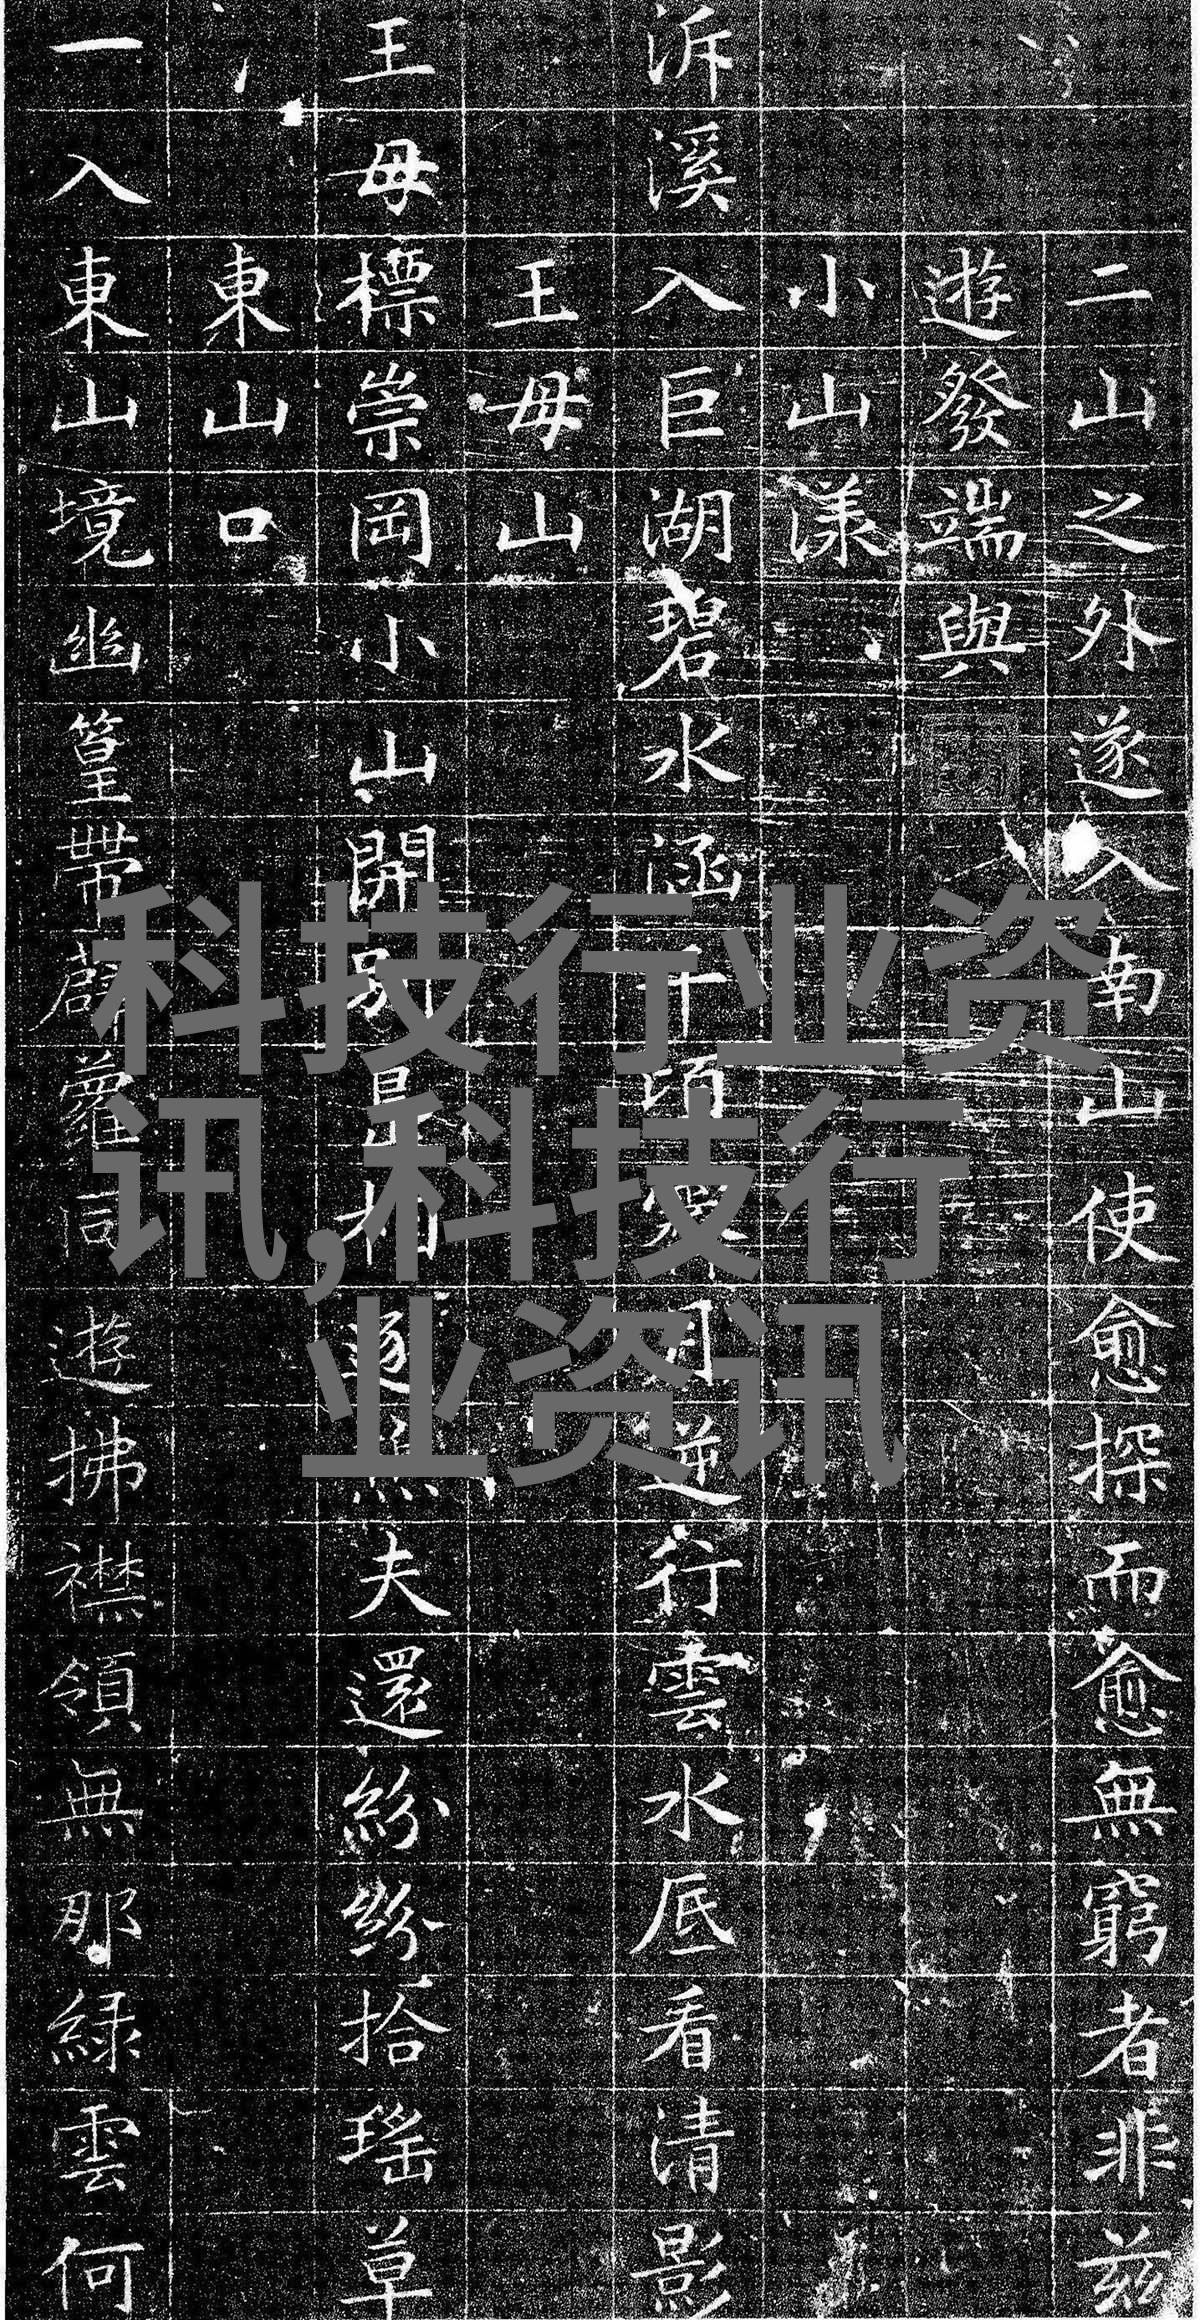 二山之外遂入南山使愈探而愈無窮者非茲
遊發端與
小山漾
泝溪入巨湖碧水涵千頃月逆行雲水底看清影
王母山
王母標崇岡小山開別相逐夫還紛紛拾瑤草
東山口
一入東山境幽篁帶薜蘿同遊拂襟領無那緑雲何
科技行业资
讯,科技行
业资讯